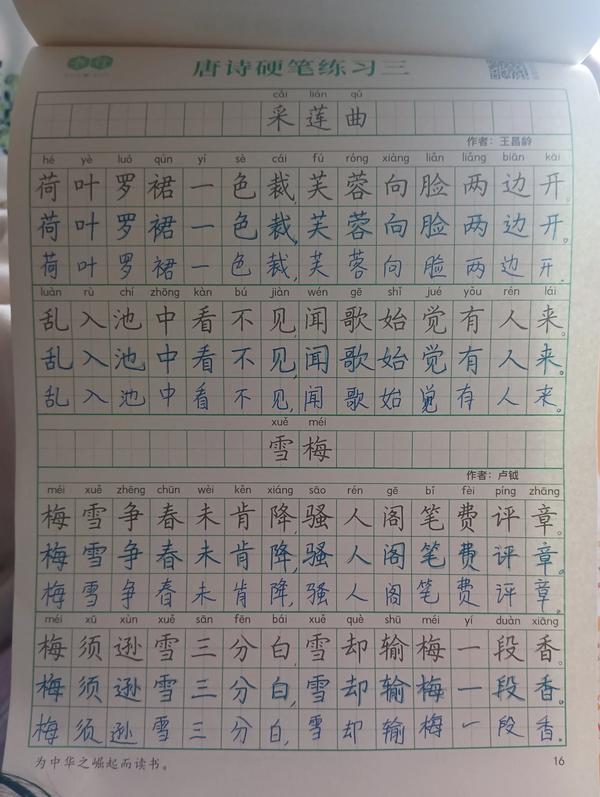 唐诗硬笔练习三
cǎi lián qǔ
采莲曲
作者：王昌龄
hé yè luó qún yí sè cái fú róng xiàng liǎn liǎng biān kāi
荷叶罗裙一色裁,芙蓉向脸两边开。
荷叶罗裙一色裁,芙蓉向脸两边开。
荷叶罗裙一色裁,芙蓉向脸两边开。
luàn rù chí zhōng kàn bú jiàn wén gē shǐ jué yǒu rén lái
乱入池中看不见,闻歌始觉有人来。
乱入池中看不见,闻歌始觉有人来。
乱入池中看不见,闻歌始觉有人来。
xuě méi
雪梅
作者：卢钺
méi xuě zhēng chūn wèi kěn xiáng sāo rén gē bǐ fèi píng zhāng
梅雪争春未肯降,骚人阁笔费评章。
梅雪争春未肯降,骚人阁笔费评章。
梅雪争春未肯降,骚人阁笔费评章。
méi xū xùn xuě sān fēn bái xuě què shū méi yí duàn xiāng
梅须逊雪三分白,雪却输梅一段香。
梅须逊雪三分白,雪却输梅一段香。
梅须逊雪三分白,雪却输梅一段香。
为中华之崛起而读书。
16